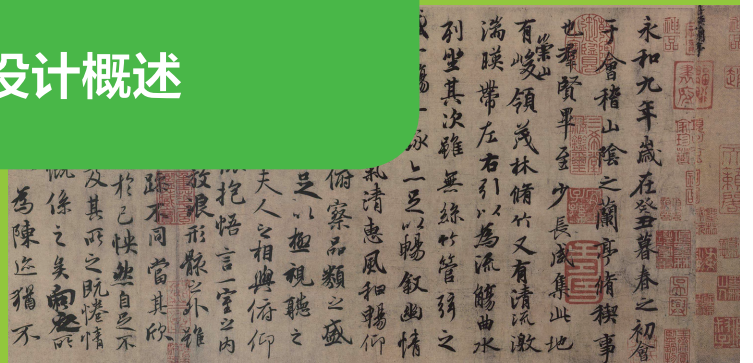 设计概述
永和九年歲在癸丑暮春之初會
于會稽山陰之蘭亭脩稧事
也羣賢畢至少長咸集此地
有崇山峻領茂林脩竹又有清流激
湍暎帶左右引以為流觴曲水
列坐其次雖無絲竹管弦之
盛一觴一詠上足以暢叙幽情
氣清惠風和暢仰
俯察品類之盛
足以極視聽之
夫人之相與俯仰
抱悟言一室之内
放浪形骸之外雖
躁不同當其欣
於己怏然自足不
及其所之既惓情
慨係之矣向之所
為陳迹猶不